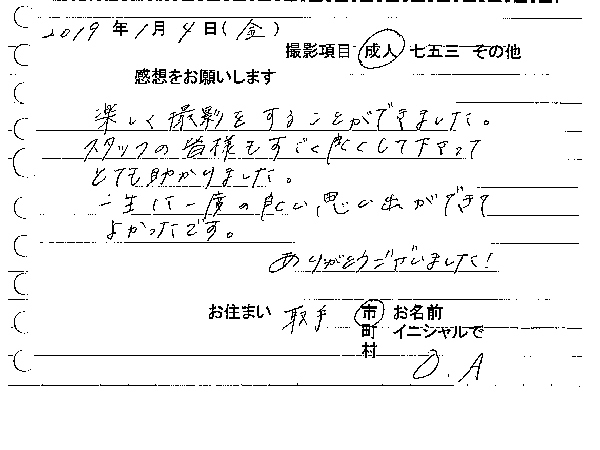 2019年1月4日(金)
撮影項目 成人 七五三 その他
感想をお願いします
楽しく撮影をすることができました。
スタッフの皆様もすごく良くして下さって
とても助かりました。
一生に一度の良い思い出ができて
よかったです。
ありがとうございました!
お住まい 取手 市 お名前
町 イニシャルで
村
O.A